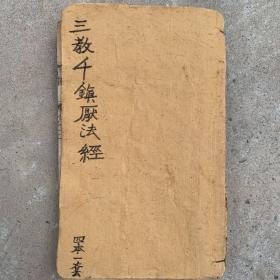 三教千鎮厭法經
四本一套